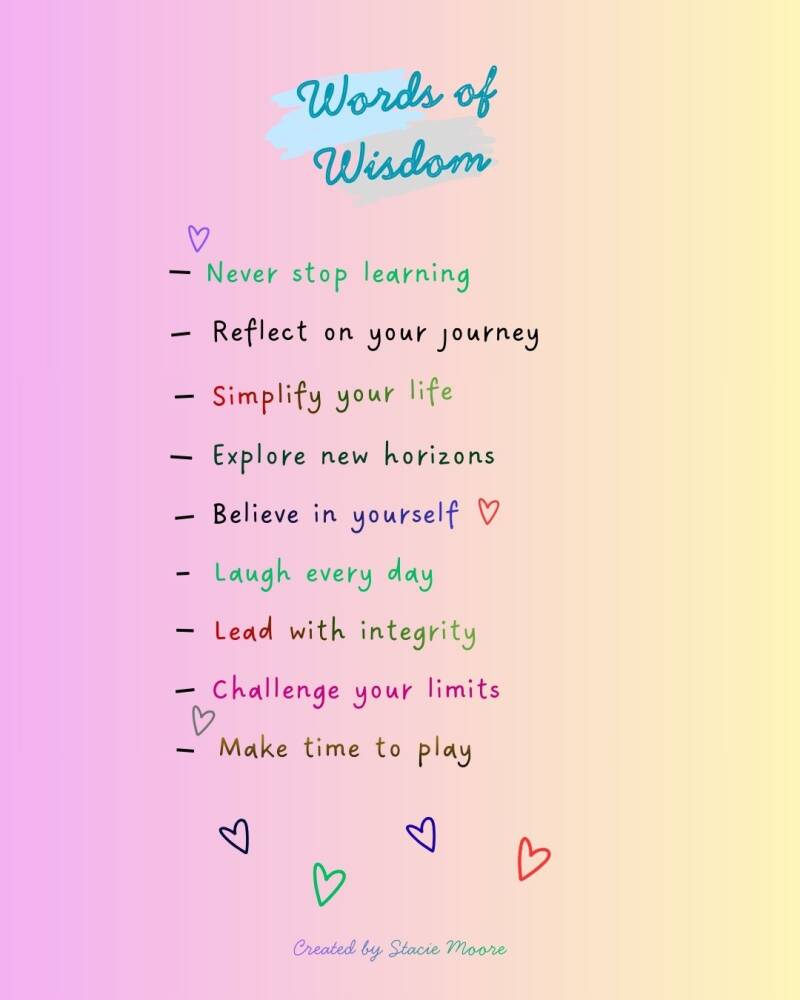 Words of
Wisdom
– Never stop learning
– Reflect on your journey
– Simplify your life
– Explore new horizons
– Believe in yourself
– Laugh every day
– Lead with integrity
– Challenge your limits
– Make time to play
Created by Stacie Moore